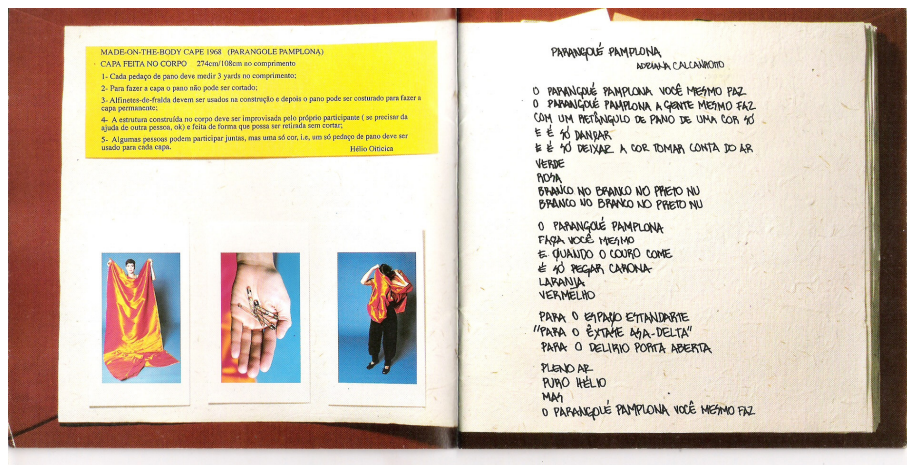 MADE-ON-THE-BODY CAPE 1968 (PARANGOLE PAMPLONA)
CAPA FEITA NO CORPO 274cm/108cm no comprimento
1- Cada pedaço de pano deve medir 3 yards no comprimento;
2- Para fazer a capa o pano não pode ser cortado;
3- Alfinetes-de-fraída devem ser usados na construção e depois o pano pode ser costurado para fazer a
capa permanente;
4- A estrutura construída no corpo deve ser improvisada pelo próprio participante ( se precisar da
ajuda de outra pessoa, ok) e feita de forma que possa ser retirada sem cortar;
5- Algumas pessoas podem participar juntas, mas uma só cor, i.e, um só pedaço de pano deve ser
usado para cada capa.
Hélio Oiticica
PARANGOLÉ PAMPLONA
ADRIANA CALCANHOTTO
O PARANGOLÉ PAMPLONA VOCÊ MESMO FAZ
O PARANGOLÉ PAMPLONA A GENTE MESMO FAZ
COM UM RETÂNGULO DE PANO DE UMA COR SÓ
E É SÓ DANÇAR
E É SÓ DEIXAR A COR TOMAR CONTA DO AR
VERDE
ROSA
BRANCO NO BRANCO NO PRETO NU
BRANCO NO BRANCO NO PRETO NU
O PARANGOLÉ PAMPLONA
FAÇA VOCÊ MESMO
E QUANDO O COURO COME
É SÓ PEGAR CARONA
LARANJA
VERMELHO
PARA O ESPAÇO ESTANDARTE
"PARA O ÊXTASE ASA-DELTA"
PARA O DELÍRIO PORTA ABERTA
PLENO AR
PURO HÉLIO
MAS
O PARANGOLÉ PAMPLONA VOCÊ MESMO FAZ